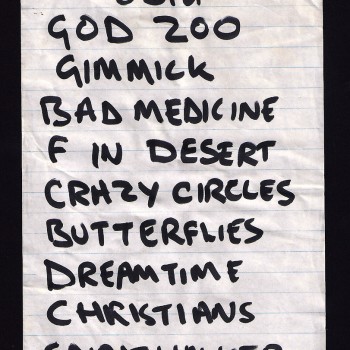 GOD ZOO
GIMMICK
BAD MEDICINE
F IN DESERT
CRAZY CIRCLES
BUTTERFLIES
DREAMTIME
CHRISTIANS